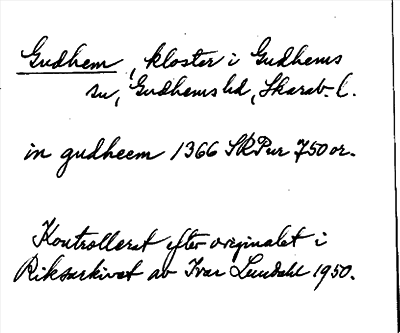 Gudhem, kloster i Gudhems
sn, Gudhems hd, Skarab. l.
in gudheem 1366 SRPur 750 or.
Kontrollerat efter originalet i
Riksarkivet av Ivar Lundahl 1950.